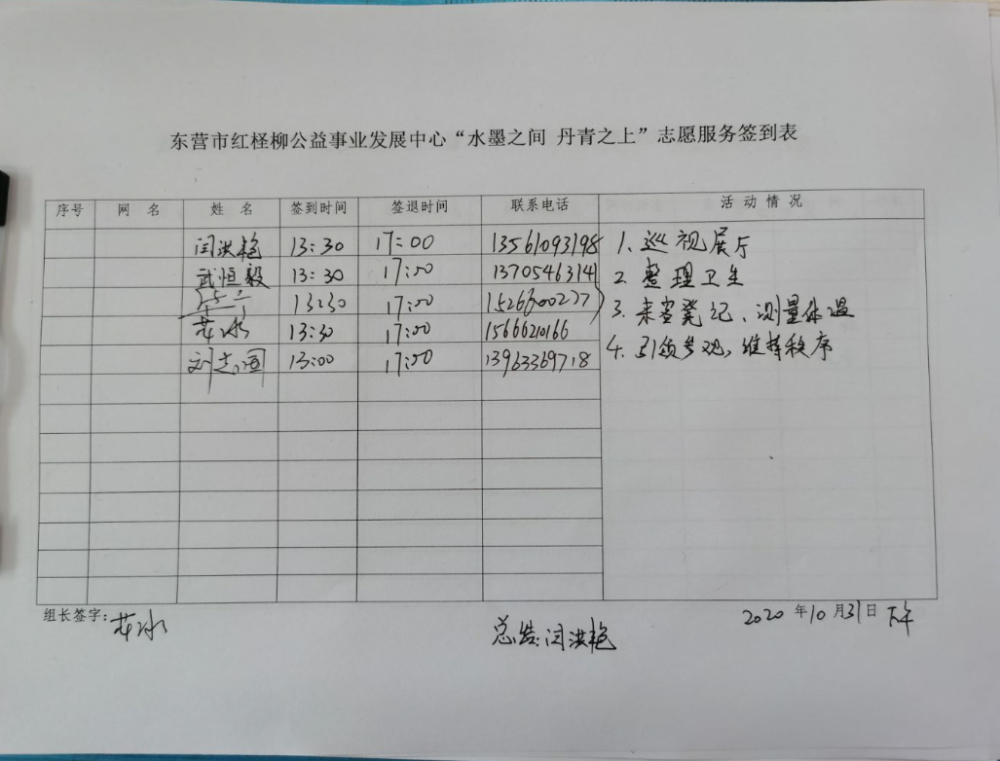 东营市红柽柳公益事业发展中心“水墨之间 丹青之上”志愿服务签到表
序号 网 名 姓 名 签到时间 签退时间 联系电话 活动情况
闫洪艳 13:30 17:00 13561093198 1、巡视展厅
武恒毅 13:30 17:00 13705463141 2、整理卫生
13:30 17:00 3、来客登记、测量体温
苏冰 13:30 17:00 15666210166
刘志国 13:00 17:00 13963369718 4、引领参观,维持秩序
组长签字:苏冰 总结:闫洪艳 2020年10月31日下午